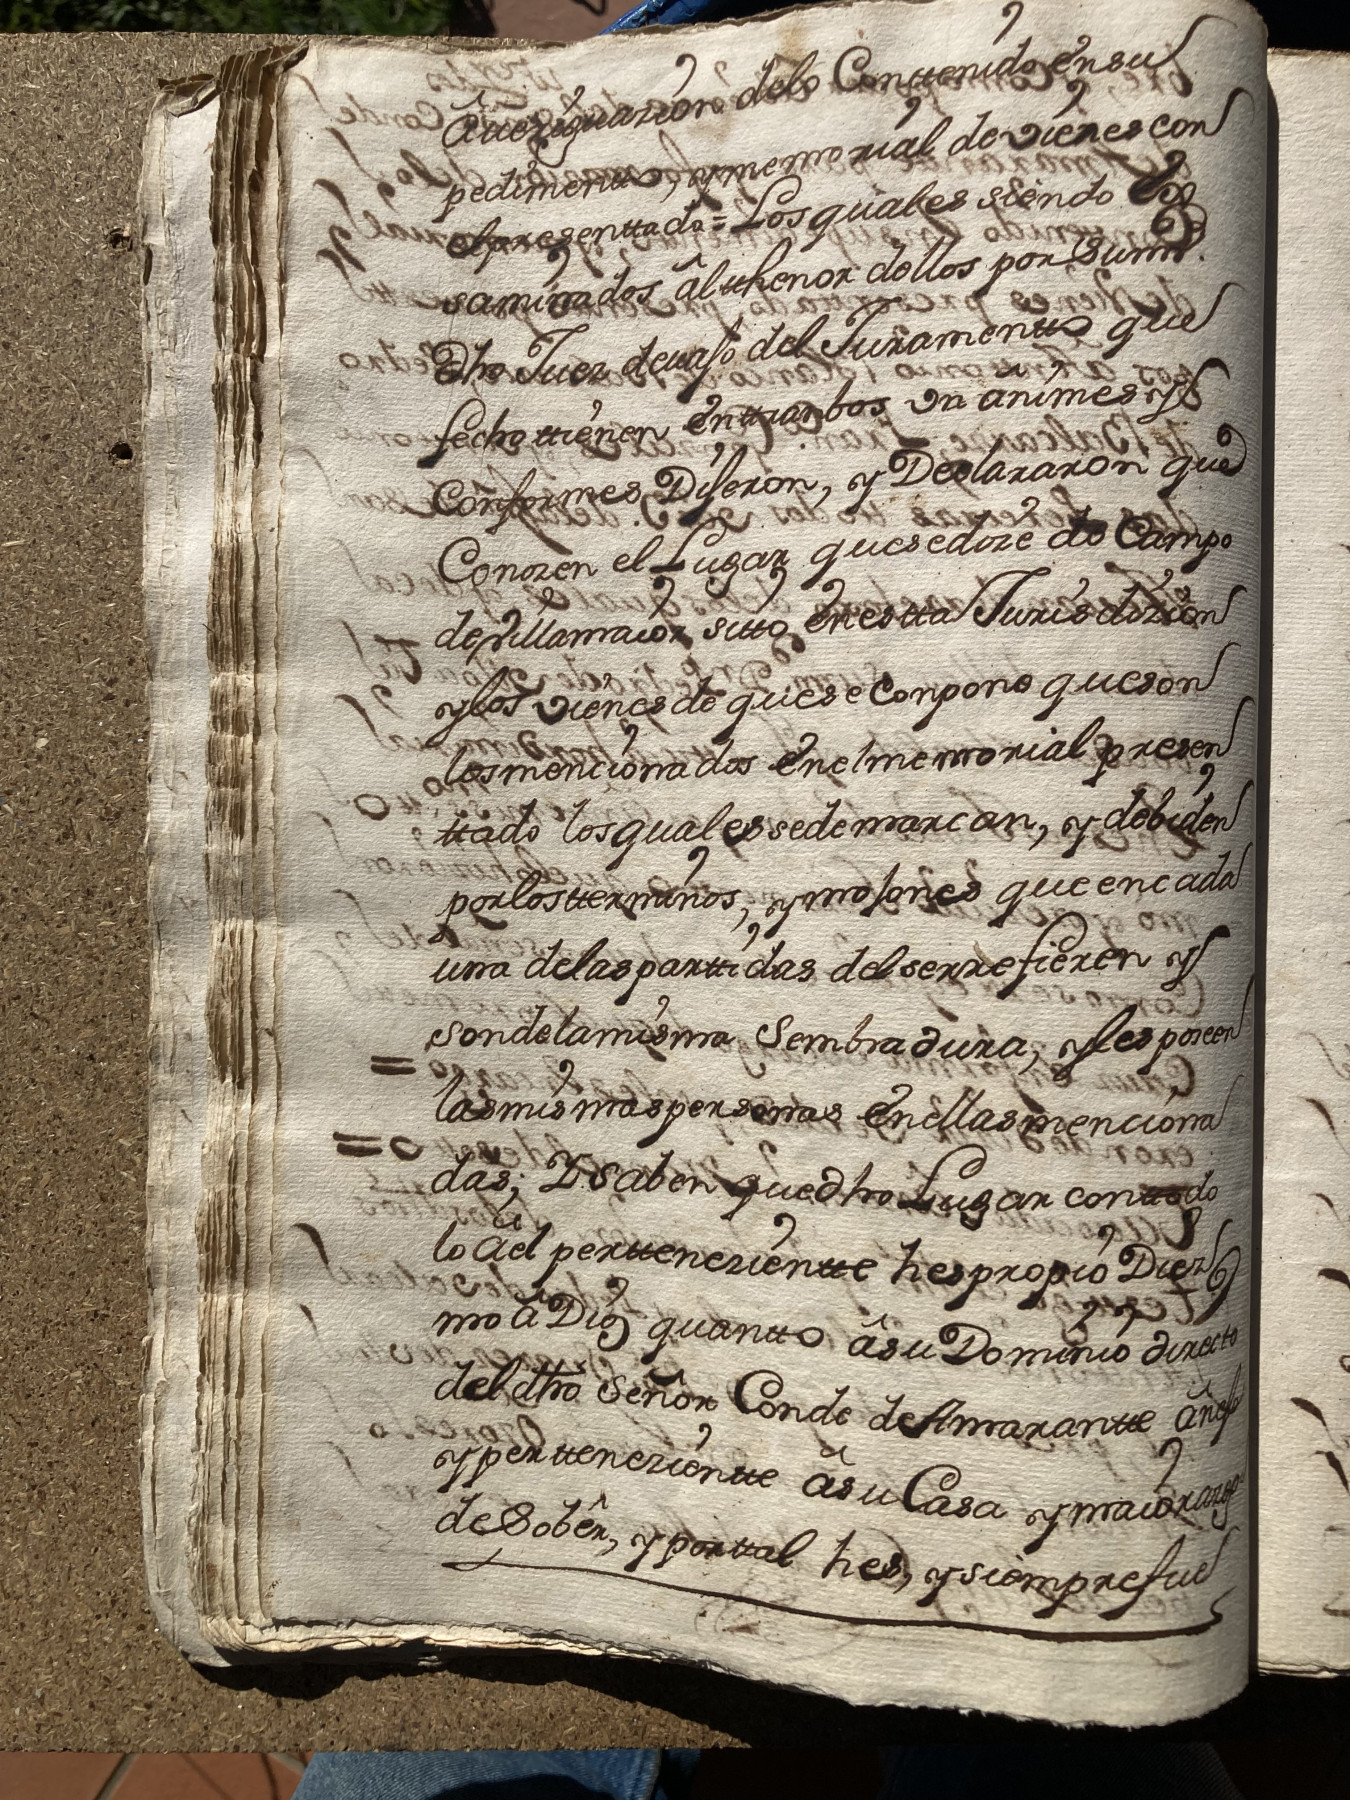 Averiguazion delo Conttenido en su
pedimentto, y memorial de vienes con
el presenttado = Los quales siendo Ex
saminados âl thenor dellos por Sumrd.
Dho Juez devajo del Juramentto que
fecho ttienen enttranbos un animes y
Conformes Dijeron, y Declararon que
Conozen el Lugar que se doze do Campo
de Villamaior sitto en estta Jurisdizion
y los vienes de que se conpone que son
los mencionados en el memorial presen
ttado los quales se demarcan, y debiden
por los tterminos, y mojones que en cada
una de las parttidas del se rrefieren y
son de la misma Sembradura, y les poseen
las mismas personas en ellas menciona
das; Y Saben que dho Lugar con ttodo
lo a el pertteneziente hes propio Diez
mo â Dios quantto â su Dominio directo
del dho Señor Conde de Amarantte âneJo
y perttenezientte â su Casa y maiorazgo
de Sobêr, y por ttal hes, y siempre fue